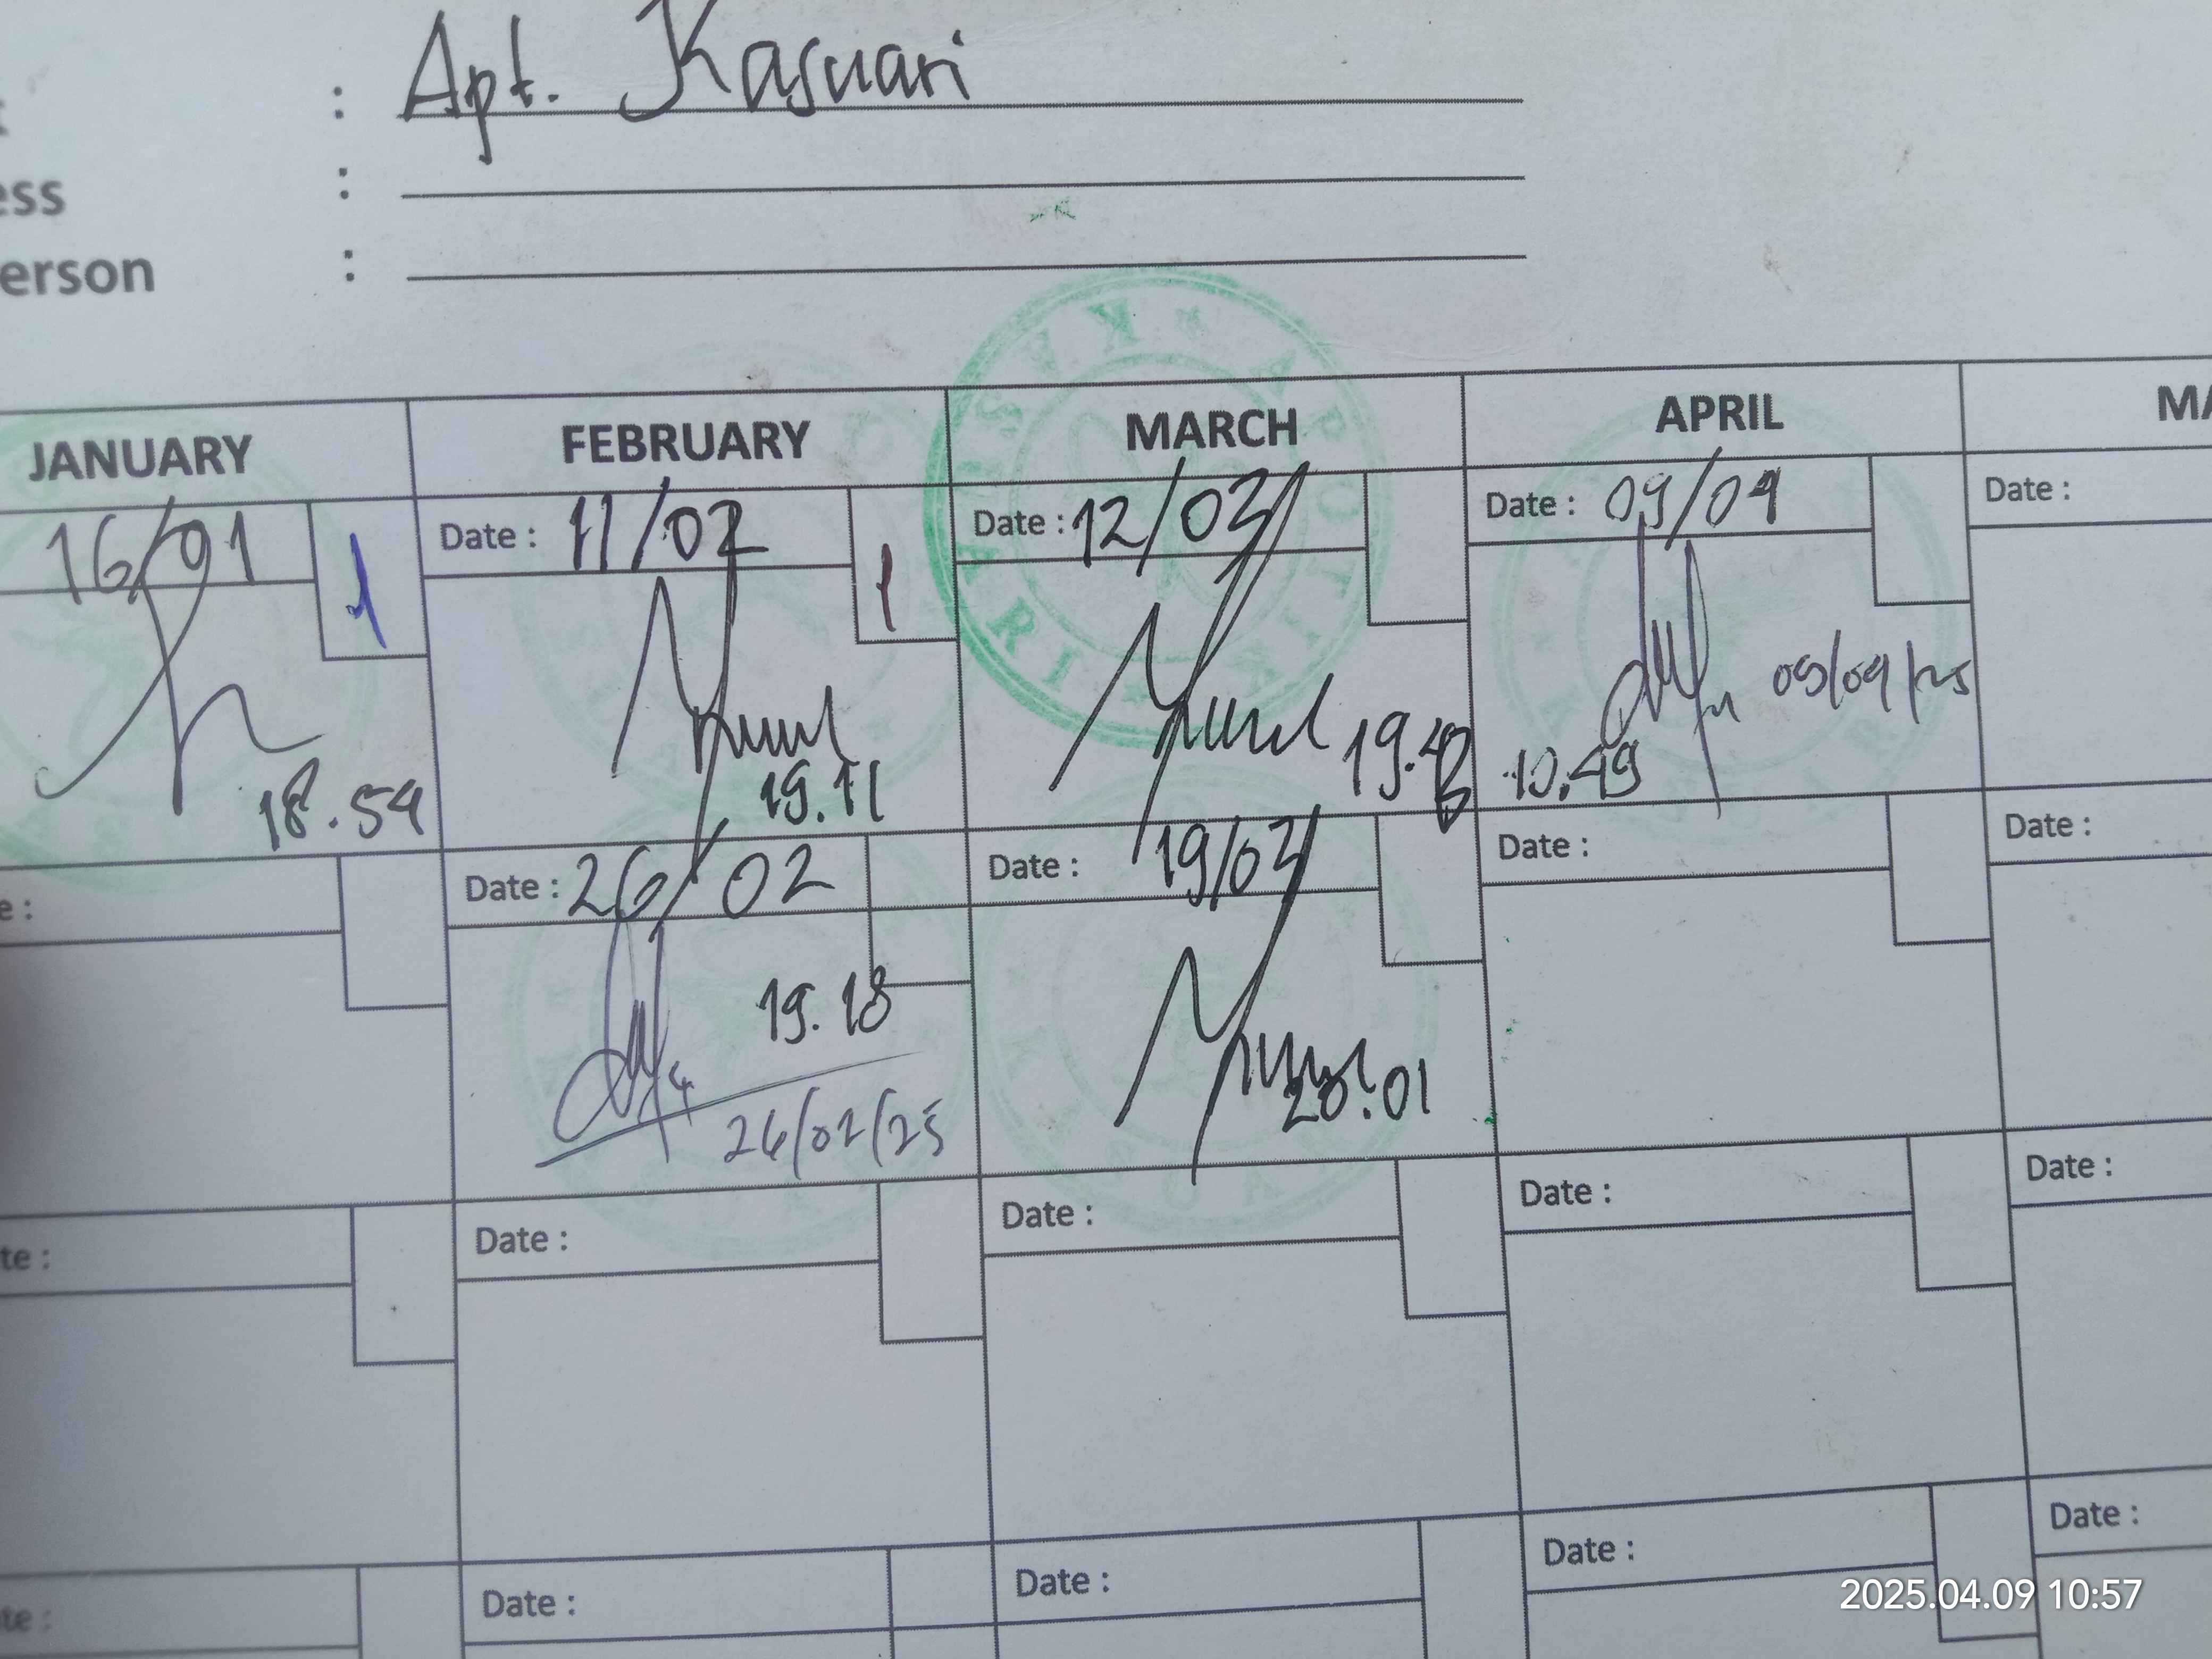 : Apt. Kasuari
ess :
erson :
JANUARY FEBRUARY MARCH APRIL MA
16/01 1 Date : 11/02 1 Date : 12/03 Date : 09/04 Date :
09/04/25
18.54 19.11 19.42 10.49
e : Date : 26/02 Date : 19/03 Date : Date :
19.18
26/02/25 20.01
te : Date : Date : Date : Date :
te : Date : Date : Date : Date :
2025.04.09 10:57